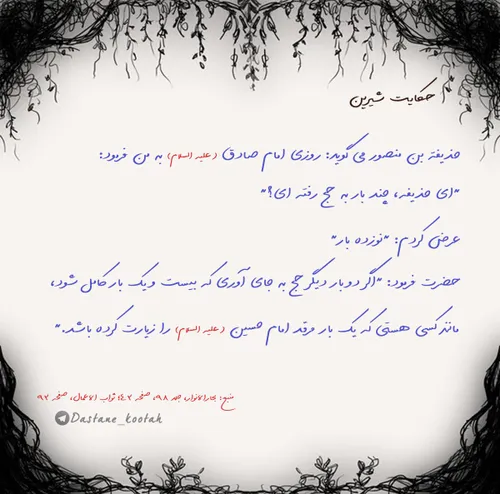 حکایت شیرین
حذیفة بن منصور می گوید: روزی امام صادق (علیه السلام) به من فرمود:
"ای حذیفه، چند بار به حج رفته ای؟"
عرض کردم: "نوزده بار"
حضرت فرمود: "اگر دو بار دیگر حج به جای آوری که بیست و یک بار کامل شود،
مانند کسی هستی که یک بار مرقد امام حسین (علیه السلام) را زیارت کرده باشد."
منبع: بحارالانوار، جلد ۹۸، صفحه ۴۲؛ ثواب الاعمال، صفحه ۹۲
Dastane_kootah